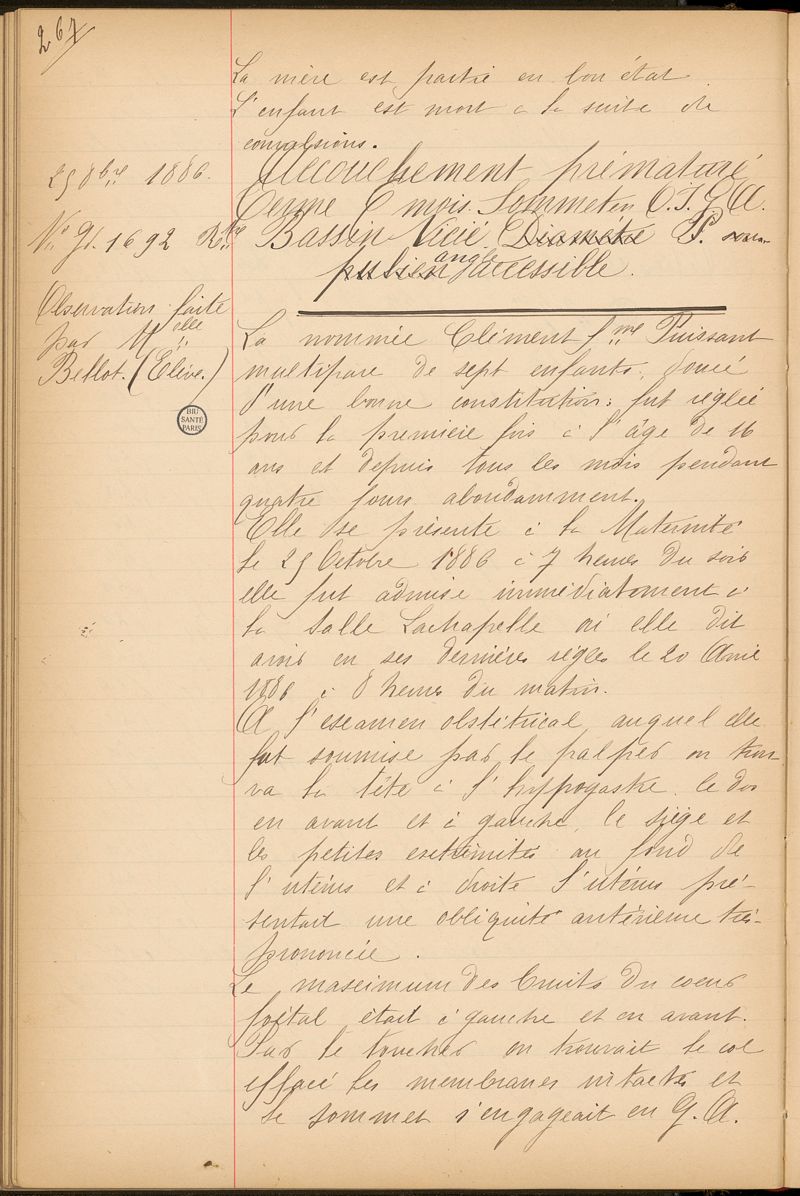 267
La mère est partie en bon état.
L'enfant est mort à la suite de
convulsions.
25 8bre 1886.
Accouchement prématuré
Terme 6 mois. Sommet en O.I.G.A.
No Gl. 1692
Bassin Vicié. Diamètre P. sous-
pubien angle accessible.
Observation faite
par Melle
Bellot. (Elève.)
BIU
SANTÉ
PARIS
La nommée Clément fme Puissant
multipare de sept enfants, douée
d'une bonne constitution: fut réglée
pour la première fois à l'âge de 16
ans et depuis tous les mois pendant
quatre jours abondamment.
Elle se présente à la Maternité
le 25 Octobre 1886 à 7 heures du soir
elle fut admise immédiatement à
la salle Lachapelle où elle dit
avoir eu ses dernières règles le 20 Avril
1886 à 8 heures du matin.
A l'examen obstétrical, auquel elle
fut soumise par le palper on trou
va la tête à l'hypogastre, le dos
en avant et à gauche, le siège et
les petites extrémités au fond de
l'utérus et à droite l'utérus pré-
sentait une obliquité antérieure très-
prononcée.
Le maximum des bruits du coeur
foetal était à gauche et en avant.
Par le toucher on trouvait le col
effacé les membranes intactes et
le sommet s'engageait en G.A.